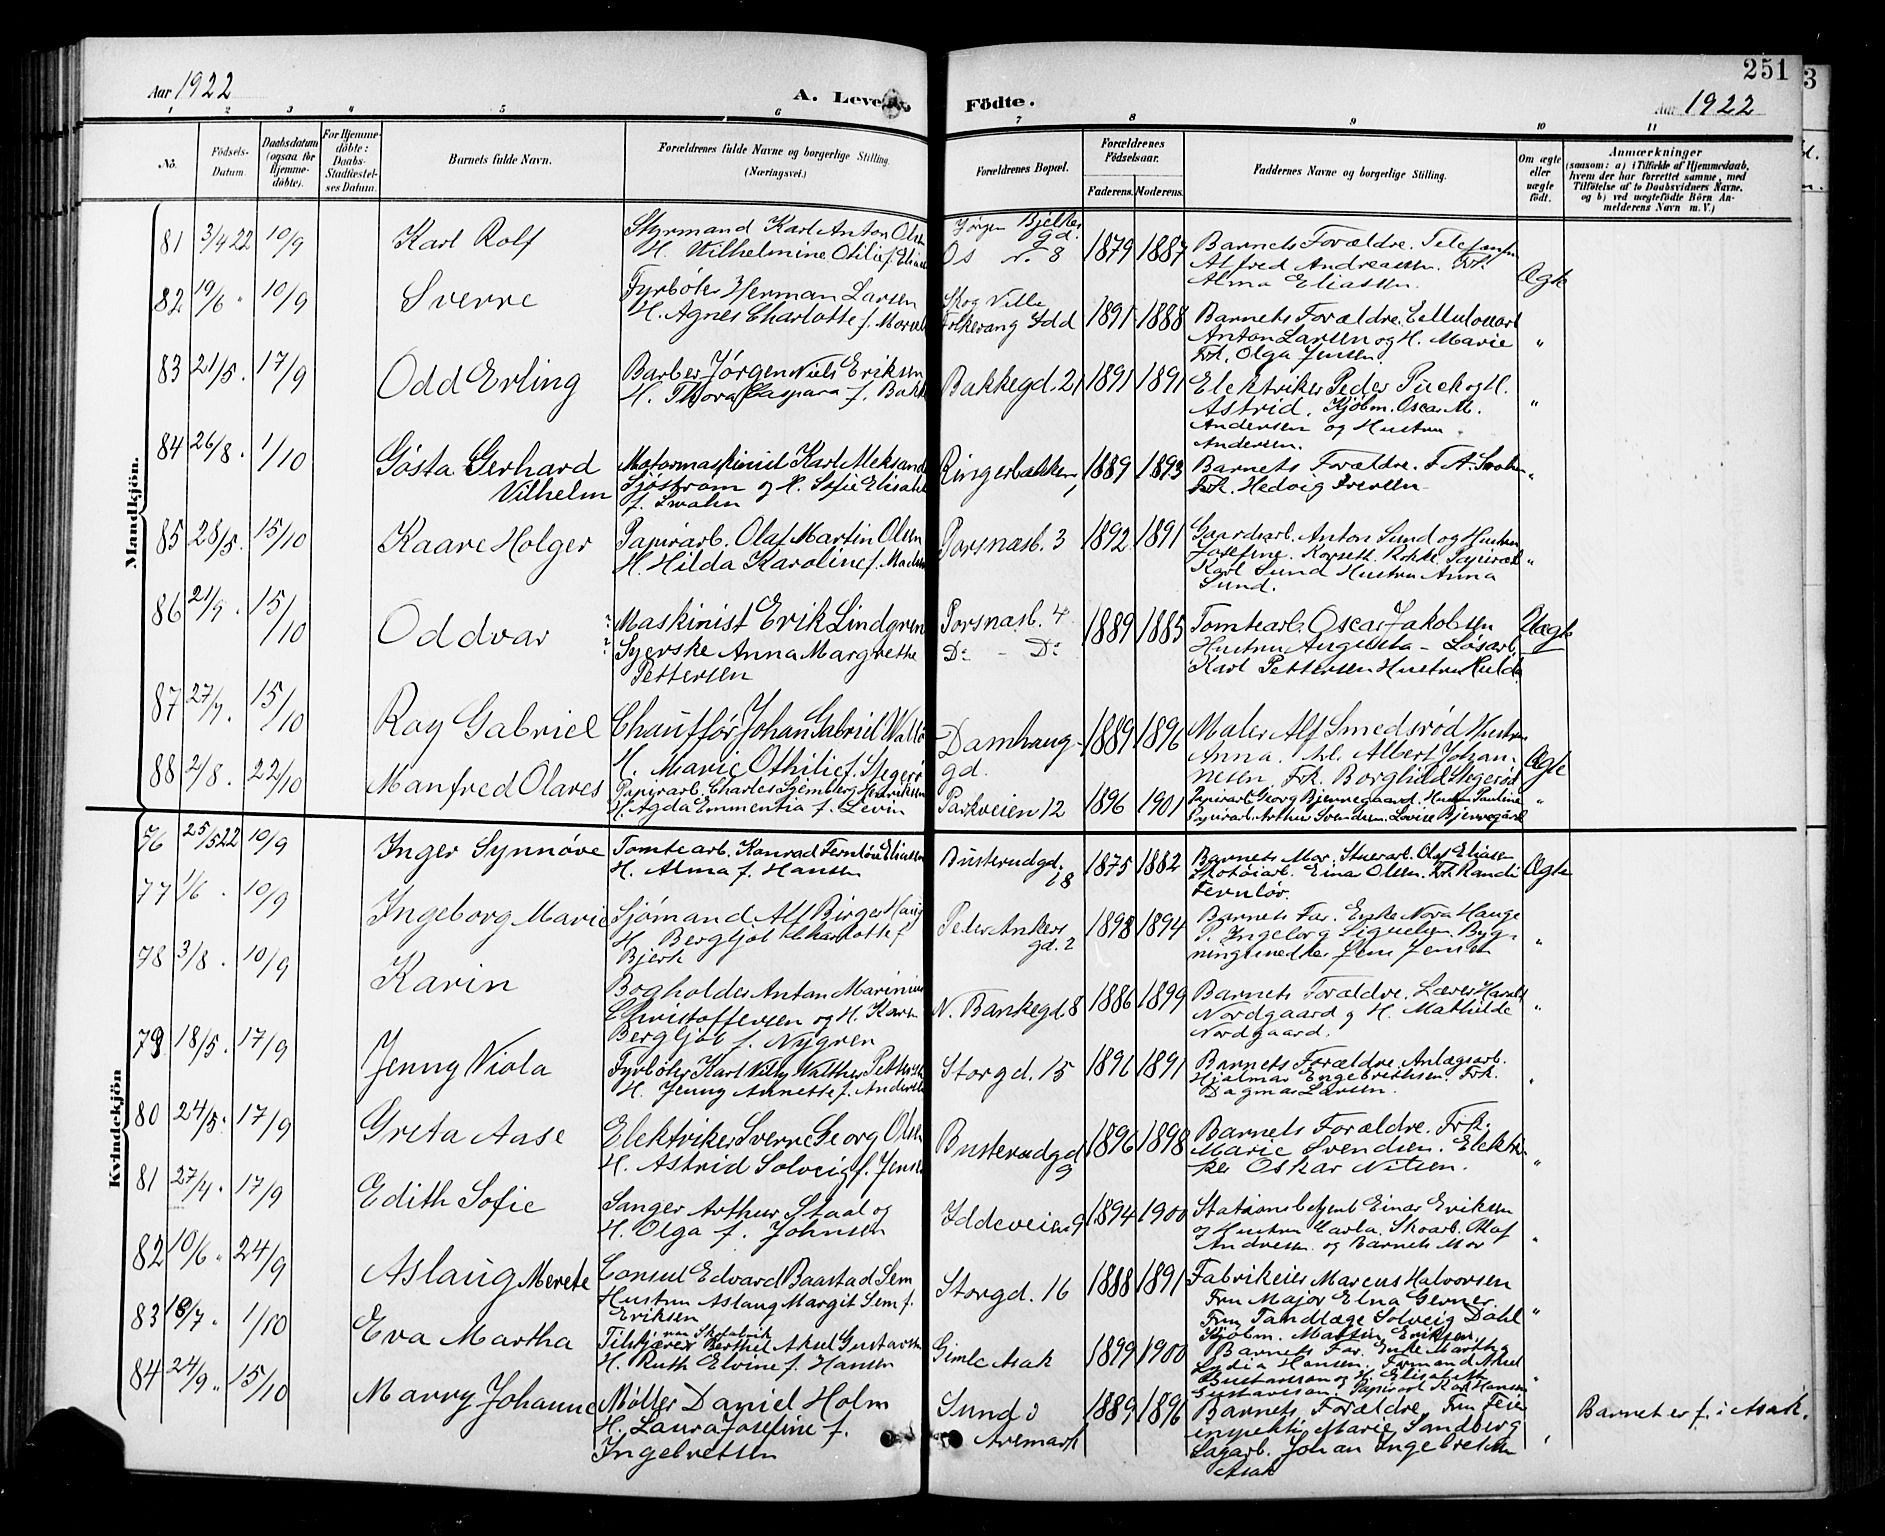 251
Aar 1922
A. Levende Födte.
Aar 1922
1 2 3 4 5 6 7 8 9 10 11
No.
Födsels-Datum.
Daabsdatum (ogsaa for Hjemme-döbte).
For Hjemme-döbte: Daabs-Stadfæstel-ses Datum.
Barnets fulde Navn.
Forældrenes fulde Navne og borgerlige Stilling. (Næringsvei.)
Forældrenes Bopæl.
Forældrenes Födselsaar.
Faderens. Moderens.
Faddernes Navne og borgerlige Stilling.
Om ægte eller uægte födt.
Anmærkninger
(saasom: a) i Tilfælde af Hjemmedaab, hvem der har forrettet samme, med Tilföielse af to Daabsvidners Navne. og b) ved uægtefödte Börn An-melderens Navn m. V.)
Mandkjön.
81 3/4 22 10/9 Karl Rolf
Styrmand Karl Anton Olsen
H. Vilhelmine Otilie f. Elias
Jørgen Bjelkes gd.
Os No. 8
1879 1887
Barnets Forældre. Telefonm
Alfred Andreassen. Frk.
Alma Eliassen.
Ægte
82 19/6 " 10/9 Sverre
Fyrbøter Herman Larsen
H. Agnes Charlotte f.
Skog Ville
Idd
1891 1888
Barnets Forældre. Cellulosearb
Anton Larsen og H. Marie
Frk. Olga Jensen.
"
83 21/5. 17/9 Odd Erling
Barber Jørgen Niels Eriksen
H. Thora Caspara f. Bakk
Bakkegd. 21
1891 1891
Elektriker Peder Puck og H.
Astrid. Kjøbm. Oscar M.
Andersen og Hustru
Andersen.
"
84 26/8. 1/10 Gösta Gerhard
Vilhelm
Motormaskinist Karl Aleksand
Sjøstrøm og H. Sofie Elisabe
f. Svahn
Ringerbakken 1
1889 1893
Barnets Forældre. F. A. Svahn
Frk. Hedvig Iversen
"
85 28/5. 15/10 Kaare Holger
Papirarb. Olaf Martin Olsen
H. Hilda Karoline f. Madsen
Porsnæsb. 3
1892 1891
Gaardsarb. Anton Sund og Hustru
Josefine. Korsett. Rokke Papirarb
Karl Sund Hustru Anna
Sund.
"
86 21/9. 15/10 Oddvar
Maskinist Erik Lindgren
Syerske Anna Margrethe
Pettersen
Porsnæsb. 4
Do - Do
1889 1885
Tomtearb. Oscar Jakobsen
Hustru Augusta - Løsarb.
Karl Pettersen Hustru Hulda
Uægte
87 27/7. 15/10 Roy Gabriel
Chauffør Johan Gabriel Wallø
H. Marie Othilie f. Stegerø
Damhaug-
gd.
1889 1896
Maler Alf Smedsrød Hustru
Anna. Arb. Albert Johan-
nesen, Frk. Borghild Stegerød
Ægte
88 2/8. 22/10 Manfred Olaves
Papirarb. Charles Stjernberg Henriksen
H. Agda Emmentia f. Levin
Parkveien 12
1896 1901
Papirarb. Georg Bjennegaard. Hustru Pauline
Papirarb. Arthur Svendsen. Lovise Bjennegård
"
Kvindekjön
76 25/5 22 10/9 Inger Synnøve
Tomtearb. Konrad Fernløv Eliassen
H. Alma f. Hansen
Busterudgd. 18
1875 1882
Barnets Mor. Stuerarb. Olaf Eliassen
Skotøiarb. Einar Olsen. Frk. Randi
Fernløv.
Ægte
77 1/6. 10/9 Ingeborg Marie
Sjömand Alf Birger Haug
H. Bergljot Charlotte f
Bjerk
Peder Ankers
gd. 2
1898 1894
Barnets Far. Enke Nora Hauge
P. Ingeborg Siguelin. Byg-
ningssnedker Jens Jensen
"
78 3/8. 10/9 Karin
Bogholder Anton Marinius
Christoffersen og H. Karen
Bergljot f. Nygren
N. Bankegd. 8
1886 1899
Barnets Forældre. Lærer Harald
Nordgaard og H. Mathilde
Nordgaard.
"
79 18/5. 17/9 Jenny Viola
Fyrbøter Karl Villy Walther Petterse
H. Jenny Annette f. Anderse
Storgd. 15
1896 1891
Barnets Forældre. Anlægsarb.
Hjalmar Engebrethsen. Frk.
Dagmar Larsen.
"
80 24/5. 17/9 Greta Aase
Elektriker Sverre Georg Olse
H. Astrid Solveig f. Jense
Busterudgd
9
1896 1898
Barnets Forældre. Frk.
Marie Svendsen. Elektri
ker Oskar Nilsen.
"
81 27/4. 17/9 Edith Sofie
Sanger Arthur Staal og
H. Olga f. Johnsen
Iddeveien 9
1894 1900
Stationsbetjent Einar Eriksen
og Hustru Carla. Skoarb. Olaf
Andresen og Barnets Mor
"
82 10/6 " 24/9 Aslaug Merete
Consul Edvard Baastad Sem
Hustru Aslaug Margit Sem f.
Eriksen
Storgd. 16
1888 1891
Fabrikeier Marcus Halvorsen
Fru Major Elna Gerner.
Fru Tandlæge Solveig Dahl
Kjøbm. Martin Eriksen.
"
83 18/7. 1/10 Eva Martha
Tilskjærer ved Skofabrik Berthel Aksel Gustavsen
H. Ruth Elvine f. Hansen
Gimle Asak
1899 1900
Barnets Far. Enke Martha
Lydia Hansen. Formand Aksel
Gustavson og H. Elisabeth
Gustavson. Papirarb. Karl Hansen
"
84 24/9 " 15/10 Marry Johanne
Møller Daniel Holm
H. Laura Josefine f.
Ingebretsen
Sund i
Aremark
1889 1896
Barnets Forældre. Fru Feier
inspektør Marie Sandberg
Sagarb. Johan Ingebretsen
Asak
"
Barnet er f. i Asak.